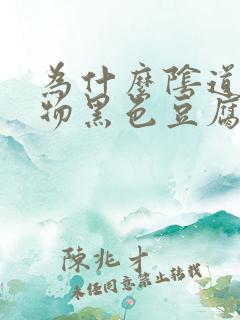 為什麼陰道
物黑色豆腐
陳兆才
未经同意禁止转载